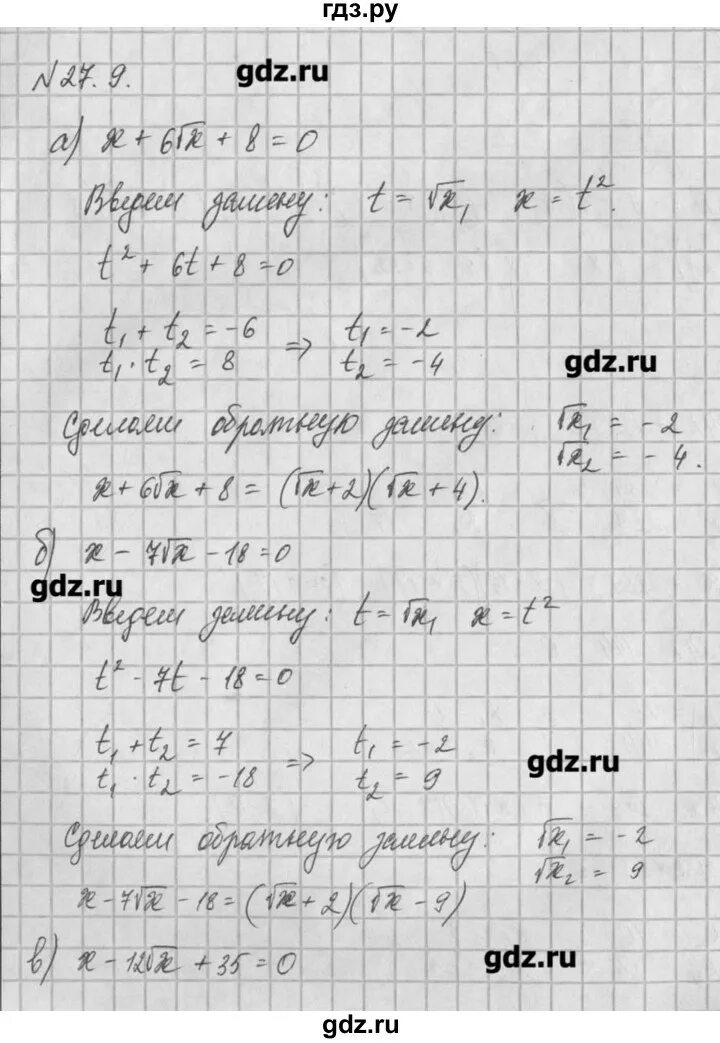 гдз.ру
№27.9.
gdz.ru
а) x + 6√x + 8 = 0
Введем замену: t = √x, x = t².
t² + 6t + 8 = 0
t₁ + t₂ = -6 ⇒ t₁ = -2
t₁ · t₂ = 8 t₂ = -4
gdz.ru
Сделаем обратную замену: √x₁ = -2
√x₂ = -4.
x + 6√x + 8 = (√x + 2)(√x + 4).
б) x - 7√x - 18 = 0
gdz.ru
Введем замену: t = √x, x = t²
t² - 7t - 18 = 0
t₁ + t₂ = 7 ⇒ t₁ = -2
t₁ · t₂ = -18 t₂ = 9
gdz.ru
Сделаем обратную замену: √x₁ = -2
√x₂ = 9
x - 7√x - 18 = (√x + 2)(√x - 9)
в) x - 12√x + 35 = 0
gdz.ru
gdz.ru